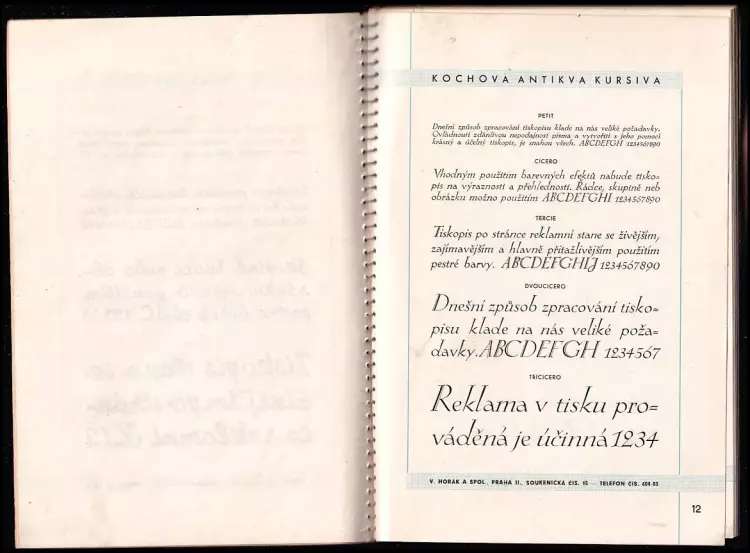 KOCHOVA ANTIKVA KURSIVA
PETIT
Dnešní způsob zpracování tiskopisu klade na nás veliké požadavky.
Ovládnouti zdánlivou nepodajnost písma a vytvořiti s jeho pomocí
krásný a účelný tiskopis, je snahou všech. ABCDEFGH 1234567890
CICERO
Vhodným použitím barevných efektů nabude tisko=
pis na výraznosti a přehlednosti. Řádce, skupině neb
obrázku možno použitím ABCDEFGHI 1234567890
TERCIE
Tiskopis po stránce reklamní stane se živějším,
zajímavějším a hlavně přitažlivějším použitím
pestré barvy. ABCDEFGHIJ 1234567890
DVOUCICERO
Dnešní způsob zpracování tisko=
pisu klade na nás veliké poža=
davky. ABCDEFGH 1234567
TŘICICERO
Reklama v tisku pro=
váděná je účinná 1234
V. HORÁK A SPOL., PRAHA II., SOUKENICKÁ ČÍS. 15 — TELEFON ČÍS. 604-85
12